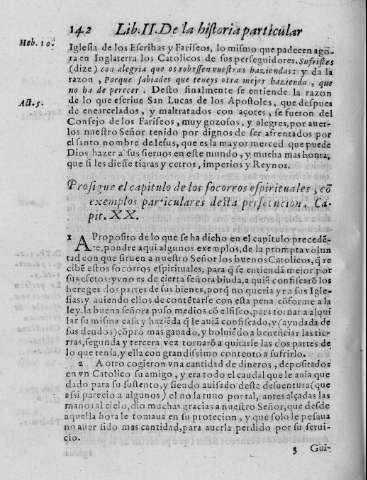 142 Lib. II. De la historia particular
Heb. 10.
Iglesia de los Escribas y Fariseos, lo mismo que padecen ago-
ra en Inglaterra los Catolicos de sus perseguidores. Sufristes
(dize) con alegria que os robassen vuestras haziendas: y da la
razon, Porque sabiades que teneys otra mejor hazienda, que
no ha de perecer. Desto finalmente se entiende la razon
Act. 5.
de lo que escriue San Lucas de los Apostoles, que despues
de encarcelados, y maltratados con açotes, se fueron del
Consejo de los Fariseos, muy gozosos, y alegres, por auer-
los nuestro Señor tenido por dignos de ser afrentados por
el santo nombre de Iesus, que es la mayor merced que puede
Dios hazer a sus sieruos en este mundo, y mucha mas honra,
que si les diesse tiaras y cetros, imperios y Reynos.
Prosigue el capitulo de los socorros espirituales, cõ
exemplos particulares desta persecucion. Ca-
pit. XX.
1 A Proposito de lo que se ha dicho en el capitulo precedẽ-
te, pondre aqui algunos exemplos, de la prompta volun
tad con que siruen a nuestro Señor los buenos Catolicos, q̃ re
cibẽ estos socorros espirituales, para q̃ se entiẽda mejor por
sus efetos: y uno es de cierta señora biuda, a quiẽ confiscarõ los
hereges dos partes de sus bienes, porq̃ no queria yr a sus Igle-
sias: y auiendo ellos de contẽtarse con esta pena cõforme a la
ley, la buena señora puso medios cõ el fisco, para tornar a alqui
lar su misma casa y haziẽda q̃ le auiã confiscado, y (ayudada de
sus deudos) cõprò mas ganado, y boluiẽdo a beneficiar las tie
rras, segunda y tercera vez tornarõ a quitarle las dos partes de
lo que tenia, y ella con grandissimo contento a sufrirlo.
2 A otro cogieron vna cantidad de dineros, depositados
en vn Catolico su amigo, y era todo el caudal que le auia que
dado para su sustento, y siendo auisado desta desuentura (que
assi parecio a algunos) el no la tuuo por tal, antes alçadas las
manos al cielo, dio muchas gracias a nuestro Señor, que desde
aquella hora le tomaua en su proteccion, y que solo le pesaua
no auer sido mas cantidad, para auerla perdido por su serui-
cio.
3 Gui-